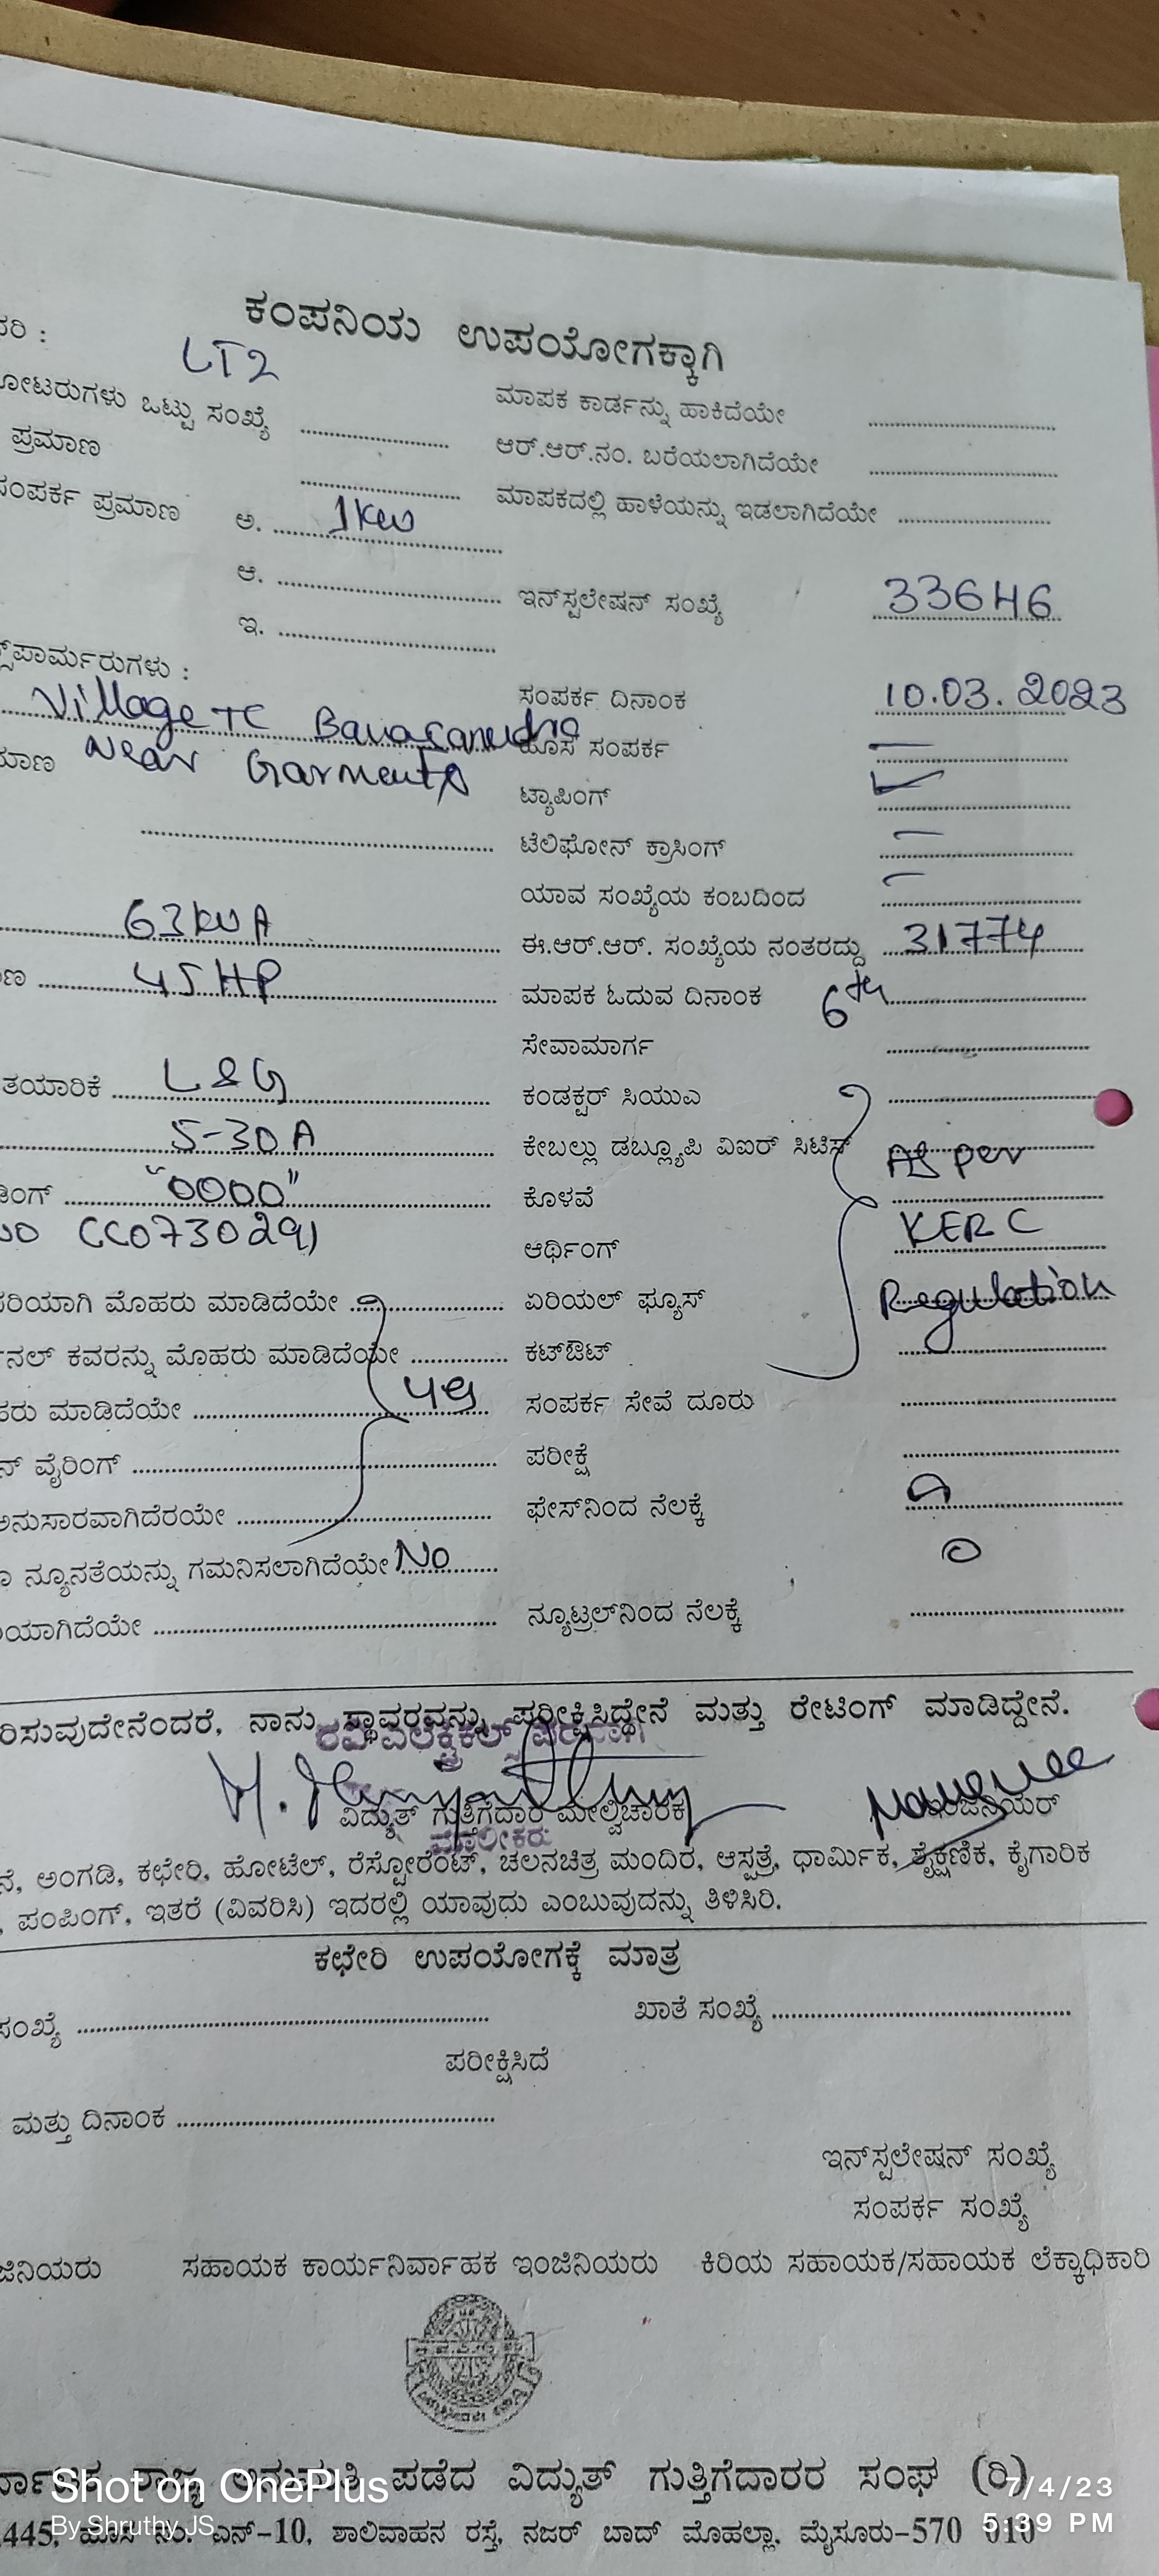 ಕಂಪನಿಯ ಉಪಯೋಗಕ್ಕಾಗಿ
LT2
ಒಟ್ಟು ಸಂಖ್ಯೆ ಮಾಪಕ ಕಾರ್ಡನ್ನು ಹಾಕಿದೆಯೇ
ಪ್ರಮಾಣ ಆರ್.ಆರ್.ನಂ. ಬರೆಯಲಾಗಿದೆಯೇ
ಸಂಪರ್ಕ ಪ್ರಮಾಣ ಅ. 1KW ಮಾಪಕದಲ್ಲಿ ಹಾಳೆಯನ್ನು ಇಡಲಾಗಿದೆಯೇ
ಆ. ಇನ್‌ಸ್ಟಲೇಷನ್ ಸಂಖ್ಯೆ 33646
ಇ.
ಸಂಪರ್ಕ ದಿನಾಂಕ 10.03.2023
Village TC ಹೊಸ ಸಂಪರ್ಕ –
Near Garments ಟ್ಯಾಪಿಂಗ್
ಟೆಲಿಫೋನ್ ಕ್ರಾಸಿಂಗ್ –
ಯಾವ ಸಂಖ್ಯೆಯ ಕಂಬದಿಂದ –
63KVA ಈ.ಆರ್.ಆರ್. ಸಂಖ್ಯೆಯ ನಂತರದ್ದು 31774
45HP ಮಾಪಕ ಓದುವ ದಿನಾಂಕ 6th
ಸೇವಾಮಾರ್ಗ
ತಯಾರಿಕೆ L&G ಕಂಡಕ್ಟರ್ ಸಿಯುಎ
5-30A ಕೇಬಲ್ಲು ಡಬ್ಲ್ಯೂಪಿ ವಿಐಆರ್ ಸಿಟಿಸ್ As per
"0000" ಕೊಳವೆ
CC0730291 ಆರ್ಥಿಂಗ್ KERC
ಮೊಹರು ಮಾಡಿದೆಯೇ ಏರಿಯಲ್ ಫ್ಯೂಸ್ Regulation
ಕವರನ್ನು ಮೊಹರು ಮಾಡಿದೆಯೇ ಕಟ್‌ಔಟ್
ಮಾಡಿದೆಯೇ ಸಂಪರ್ಕ ಸೇವೆ ದೂರು
ವೈರಿಂಗ್ ಪರೀಕ್ಷೆ
ಅನುಸಾರವಾಗಿದೆರಯೇ ಫೇಸ್‌ನಿಂದ ನೆಲಕ್ಕೆ
ನ್ಯೂನತೆಯನ್ನು ಗಮನಿಸಲಾಗಿದೆಯೇ No 0
ನ್ಯೂಟ್ರಲ್‌ನಿಂದ ನೆಲಕ್ಕೆ
ನಾನು ಸ್ಥಾವರವನ್ನು ಪರೀಕ್ಷಿಸಿದ್ದೇನೆ ಮತ್ತು ರೇಟಿಂಗ್ ಮಾಡಿದ್ದೇನೆ.
ವಿದ್ಯುತ್ ಗುತ್ತಿಗೆದಾರ ಮೇಲ್ವಿಚಾರಕ ಇಂಜಿನಿಯರ್
ಮಾಲೀಕರು
ಅಂಗಡಿ, ಕಛೇರಿ, ಹೋಟೆಲ್, ರೆಸ್ಟೋರೆಂಟ್, ಚಲನಚಿತ್ರ ಮಂದಿರ, ಆಸ್ಪತ್ರೆ, ಧಾರ್ಮಿಕ, ಶೈಕ್ಷಣಿಕ, ಕೈಗಾರಿಕ
ಪಂಪಿಂಗ್, ಇತರೆ (ವಿವರಿಸಿ) ಇದರಲ್ಲಿ ಯಾವುದು ಎಂಬುವುದನ್ನು ತಿಳಿಸಿರಿ.
ಕಛೇರಿ ಉಪಯೋಗಕ್ಕೆ ಮಾತ್ರ
ಸಂಖ್ಯೆ ಖಾತೆ ಸಂಖ್ಯೆ
ಪರೀಕ್ಷಿಸಿದೆ
ಮತ್ತು ದಿನಾಂಕ
ಇನ್‌ಸ್ಟಲೇಷನ್ ಸಂಖ್ಯೆ
ಸಂಪರ್ಕ ಸಂಖ್ಯೆ
ಸಹಾಯಕ ಕಾರ್ಯನಿರ್ವಾಹಕ ಇಂಜಿನಿಯರು ಕಿರಿಯ ಸಹಾಯಕ/ಸಹಾಯಕ ಲೆಕ್ಕಾಧಿಕಾರಿ
ರಾಜ್ಯ ಅನುಮತಿ ಪಡೆದ ವಿದ್ಯುತ್ ಗುತ್ತಿಗೆದಾರರ ಸಂಘ (ರಿ)
445, ಹೊಸ ನಂ. ಎನ್-10, ಶಾಲಿವಾಹನ ರಸ್ತೆ, ನಜರ್ ಬಾದ್ ಮೊಹಲ್ಲಾ, ಮೈಸೂರು-570 010
Shot on OnePlus
By Shruthy JS
7/4/23
5:39 PM